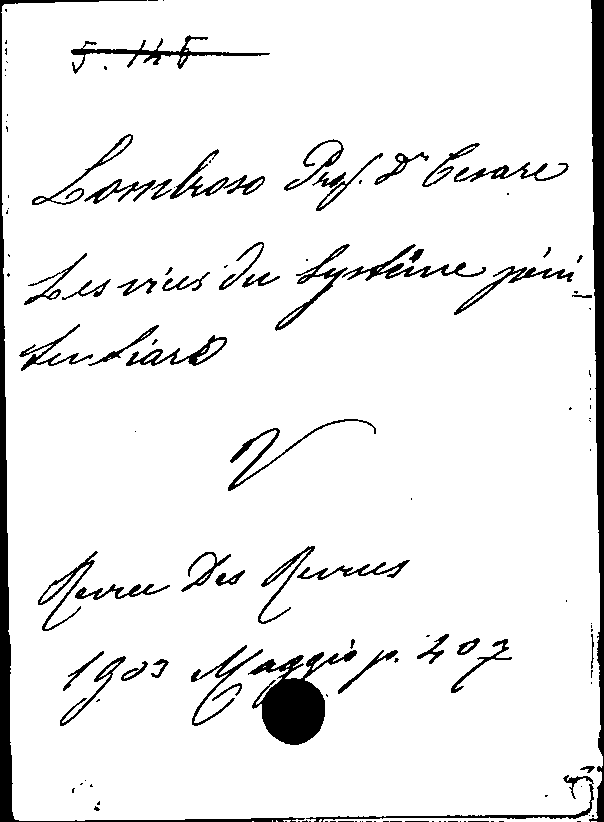 5. 145
Lombroso Prof. Dr Cesare
Les vices du système péni
tentiare
V
Revue Des Revues
1903 Maggio p. 207